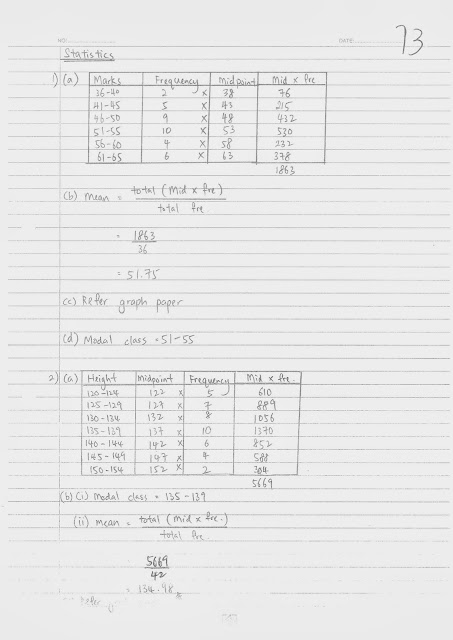 NO:
DATE:
73
Statistics
1) (a) Marks Frequency Midpoint Mid x fre
36-40 2 x 38 76
41-45 5 x 43 215
46-50 9 x 48 432
51-55 10 x 53 530
56-60 4 x 58 232
61-65 6 x 63 378
1863
(b) Mean = total (Mid x fre)
total fre
= 1863
36
= 51.75
(c) Refer graph paper
(d) Modal class = 51-55
2) (a) Height midpoint Frequency Mid x fre.
120-124 122 x 5 610
125-129 127 x 7 889
130-134 132 x 8 1056
135-139 137 x 10 1370
140-144 142 x 6 852
145-149 147 x 4 588
150-154 152 x 2 304
5669
(b) (i) Modal class = 135-139
(ii) mean = total (Mid x fre.)
total fre.
5669
42
= 134.98
refer